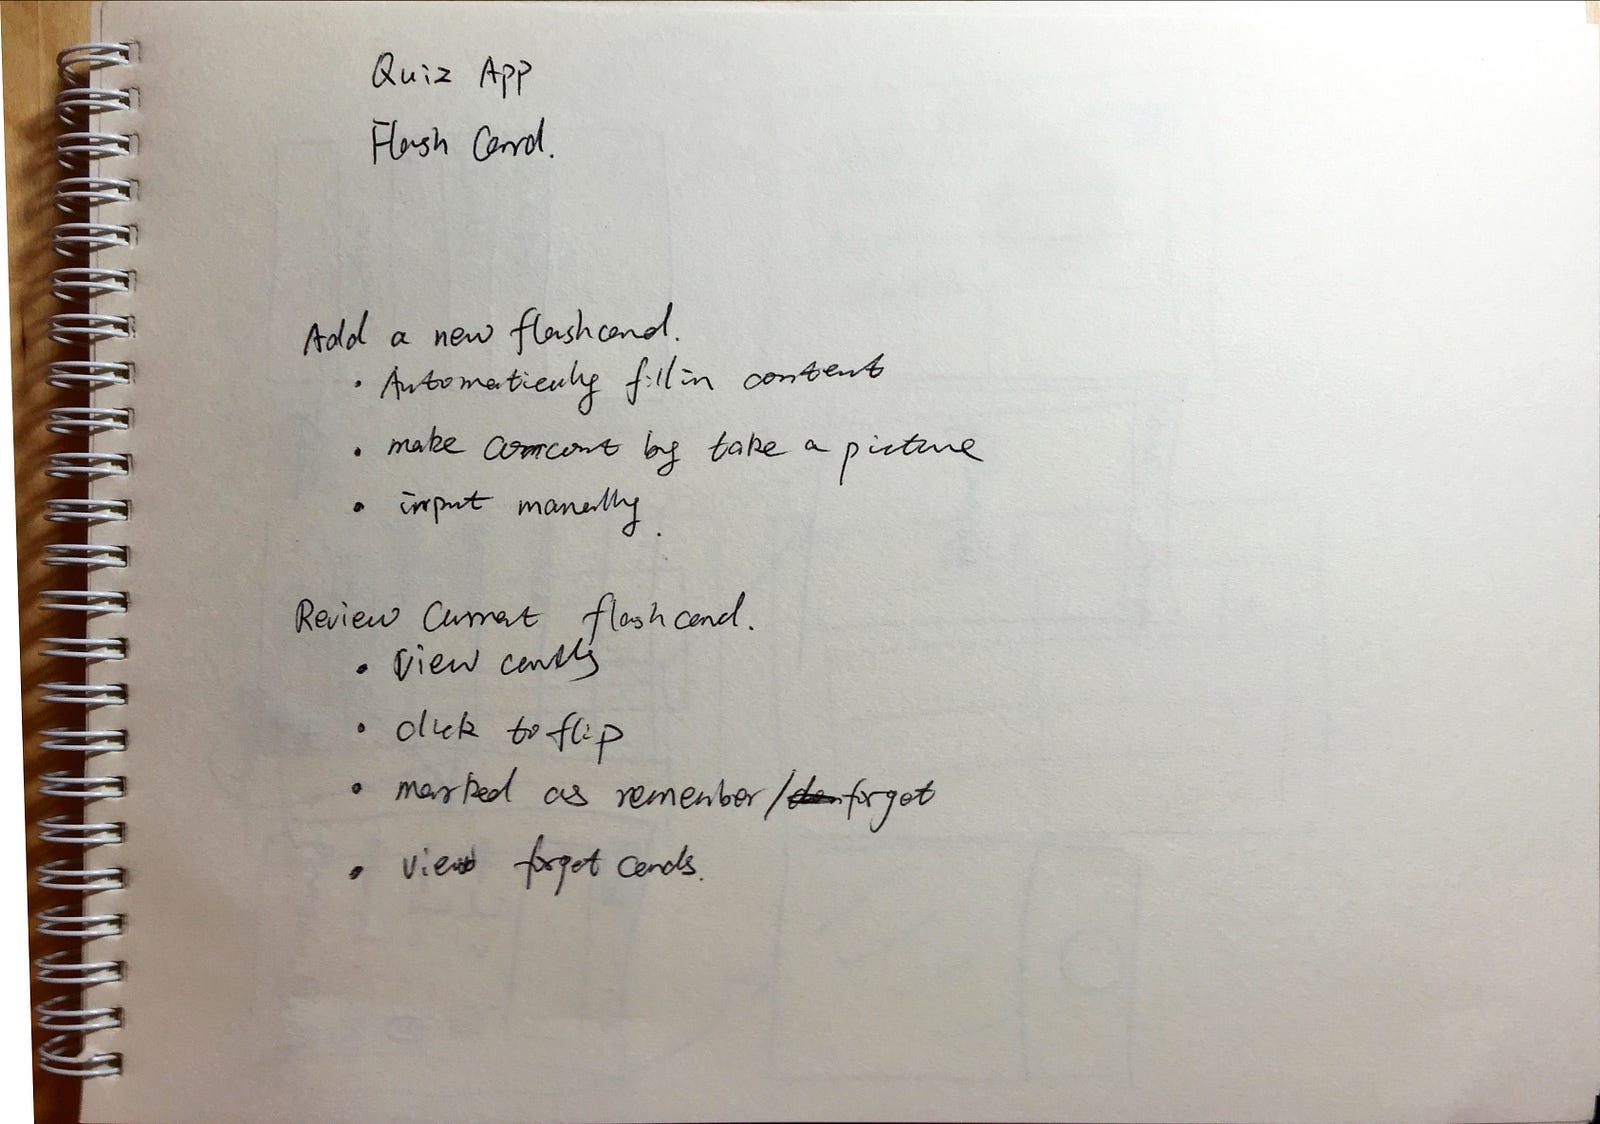 Quiz App
Flash Card.
Add a new flashcard.
• Automatically fill in content
• make by take a picture
• input manally.
Review Current flashcard.
• View cards
• click to flip
• marked as remember/forget
• view forget cards.